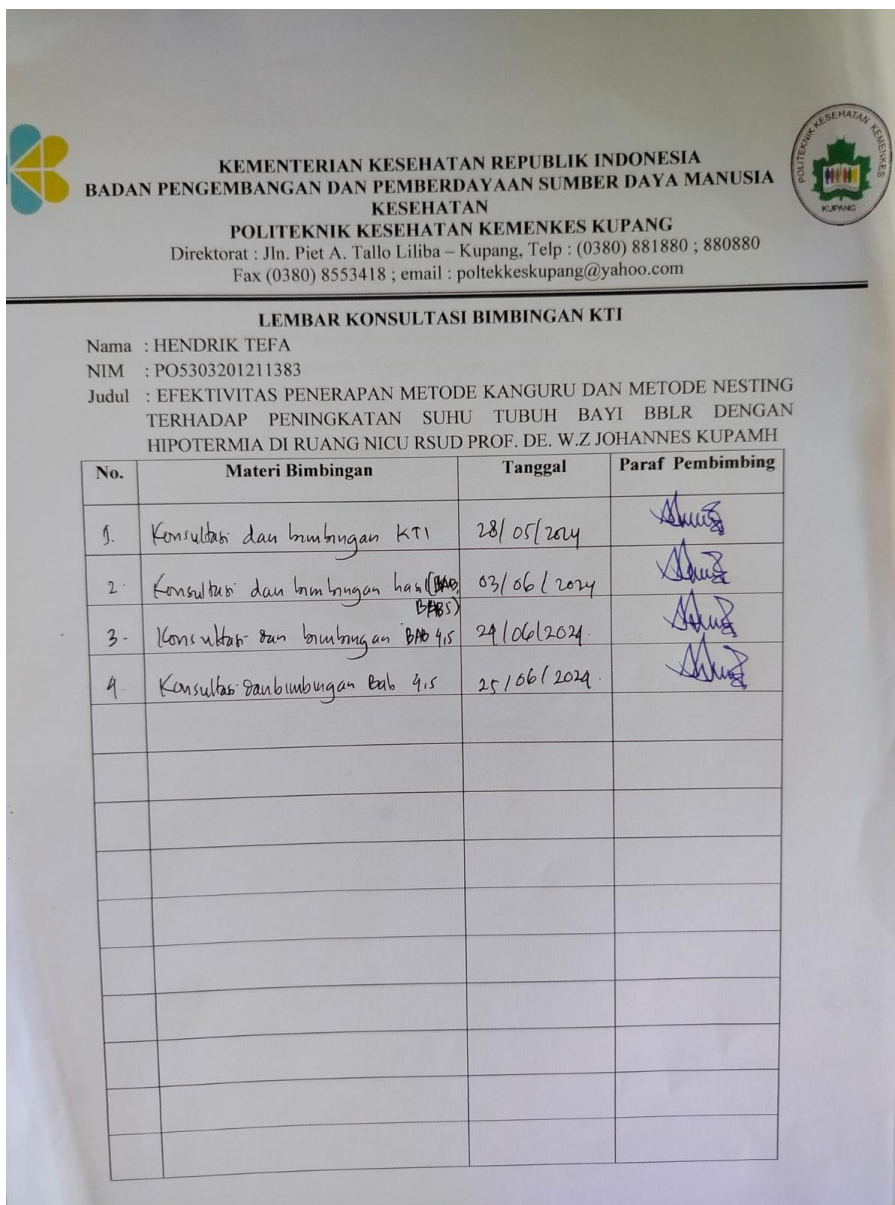 KEMENTERIAN KESEHATAN REPUBLIK INDONESIA
BADAN PENGEMBANGAN DAN PEMBERDAYAAN SUMBER DAYA MANUSIA
KESEHATAN
POLITEKNIK KESEHATAN KEMENKES KUPANG
Direktorat : Jln. Piet A. Tallo Liliba – Kupang, Telp : (0380) 881880 ; 880880
Fax (0380) 8553418 ; email : poltekkeskupang@yahoo.com
POLITEKNIK KESEHATAN KEMENKES
KUPANG
LEMBAR KONSULTASI BIMBINGAN KTI
Nama : HENDRIK TEFA
NIM : PO5303201211383
Judul : EFEKTIVITAS PENERAPAN METODE KANGURU DAN METODE NESTING
TERHADAP PENINGKATAN SUHU TUBUH BAYI BBLR DENGAN
HIPOTERMIA DI RUANG NICU RSUD PROF. DE. W.Z JOHANNES KUPAMH
No. Materi Bimbingan Tanggal Paraf Pembimbing
1. Konsultasi dan bimbingan KTI 28/05/2024
2. Konsultasi dan bimbingan hasil 03/06/2024
3. Konsultasi dan bimbingan BAB 4,5 24/06/2024.
4. Konsultasi dan bimbingan Bab 4,5 25/06/2024.